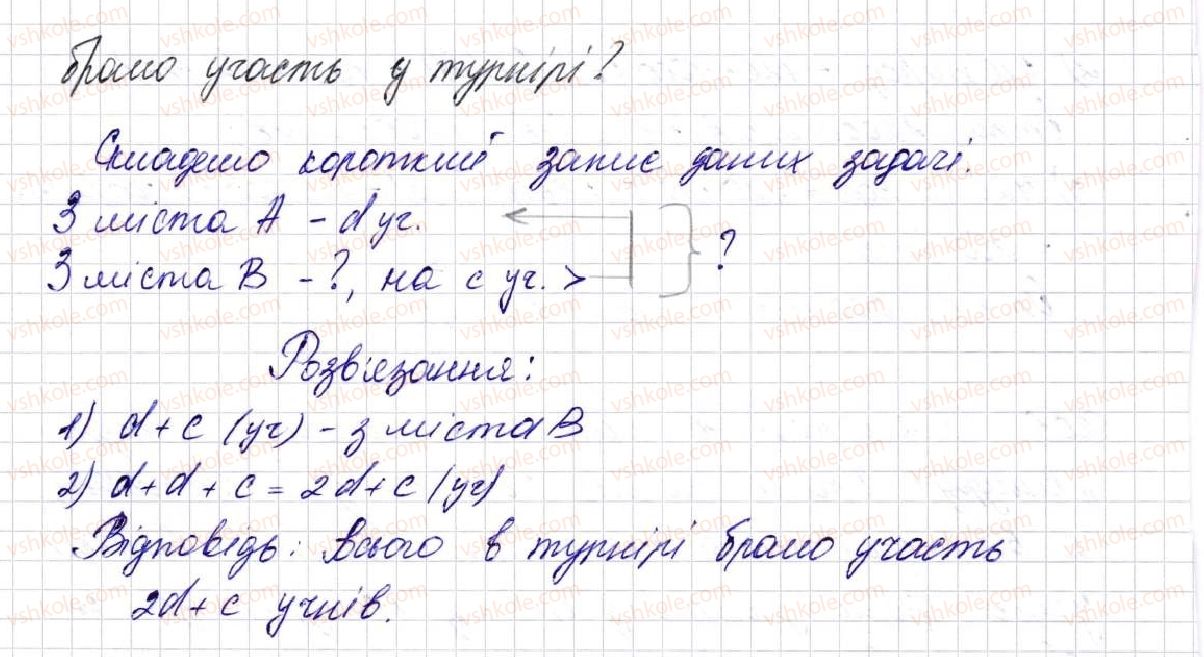 брало участь у турнірі?
Складемо короткий запис даних задачі.
З міста А - d уч.
З міста В - ?, на с уч. > ?
Розв'язання:
1) d + c (уч) - з міста В
2) d + d + c = 2d + c (уч)
Відповідь: всього в турнірі брало участь
2d + c учнів.